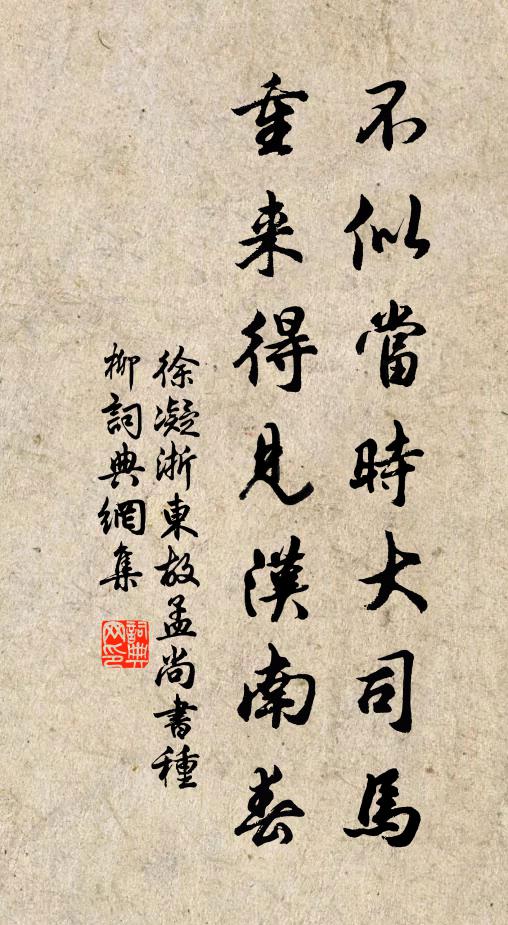 不似當時大司馬
重来得見漢南春
徐凝浙東故孟尚書種
柳詞典網集
詞典
网印